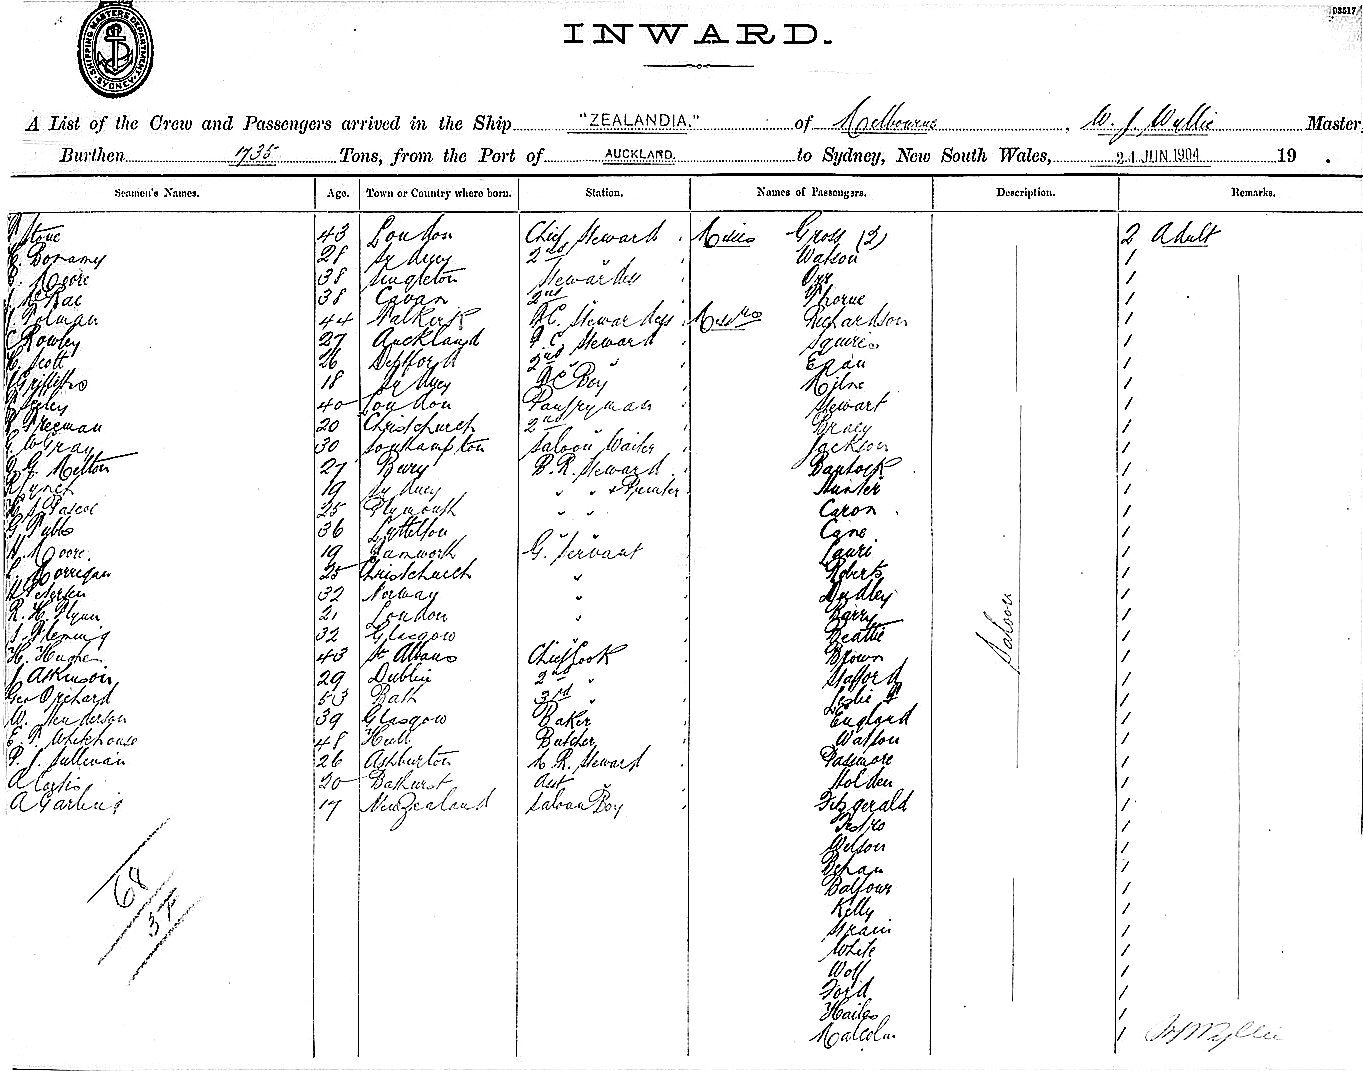 D3517
SHIPPING MASTER'S DEPARTMENT SYDNEY
INWARD.
A List of the Crew and Passengers arrived in the Ship "ZEALANDIA." of Melbourne, W. J. Wyllie Master
Burthen 1735 Tons, from the Port of AUCKLAND. to Sydney, New South Wales, 21 JUN 1904 19 .
Seamen's Names. Age. Town or Country where born. Station. Names of Passengers. Description. Remarks.
Stone 43 London Chief Steward Misses Gross (2) 2 Adult
Bonamy 28 Sydney 2nd " Watson 1
Moore 38 Singleton Stewardess Orr 1
McRae 38 Cavan 2nd Thorne 1
Tolman 44 Falkirk Stewardess Messrs Richardson 1
Rowley 27 Auckland Steward Squires 1
Scott 26 Deptford 2nd " " Egan 1
Griffiths 18 Sydney Boy Milne 1
Seeley 40 London Pantryman Stewart 1
Freeman 20 Christchurch 2nd " Bracy 1
Gray 30 Southampton Saloon Waiter Jackson 1
Melton 27 Bury B. R. Steward Bantock 1
Lynch 19 Sydney " " & Printer Hunter 1
Pascoe 25 Plymouth " " Caron 1
G. Tubbs 36 Lyttelton " Cane 1
Moore 19 Tamworth G. Servant Lauri 1
Corrigan 25 Christchurch " Roberts 1
Petersen 32 Norway " Dudley 1
R. H. Flynn 21 London " Barry 1
Fleming 32 Glasgow " Beattie 1
H. Hughes 43 St Albans Chief Cook Brown 1
J. Atkinson 29 Dublin 2nd " Stafford 1
Geo Orchard 53 Bath 3rd " Leslie 1
W. Henderson 39 Glasgow Baker England 1
E. P. Whitehouse 48 Hull Butcher Watson 1
P. J. Sullivan 26 Ashburton M. R. Steward Passmore 1
A Curtis 20 Bathurst Asst " Holden 1
A Garling 17 New Zealand Saloon Boy Fitzgerald 1
Saloon
1
Wilson 1
Behan 1
68
Balfour 1
37
Kelly 1
Strain 1
White 1
Wolf 1
Ford 1
Hailes 1
Malcolm 1 W J Wyllie